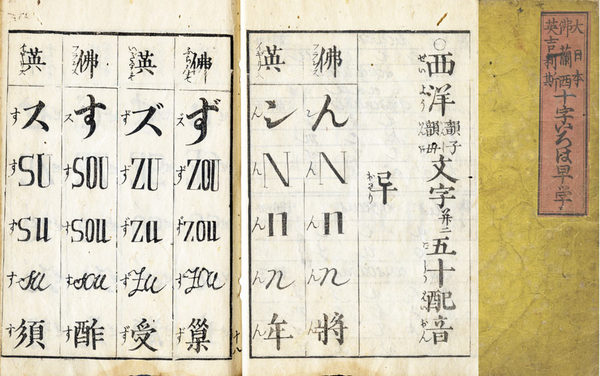 大日本
佛蘭西
英吉利斯
十字いろは早学
○西洋韻子韻母文字并ニ五十配音
佛
ん
N
n
n
将
英
ン
N
n
n
年
十八
佛
ず
ZOU
zou
zou
巣
英
ズ
ZU
zu
zu
受
佛
す
SOU
sou
sou
酢
英
ス
SU
su
su
須